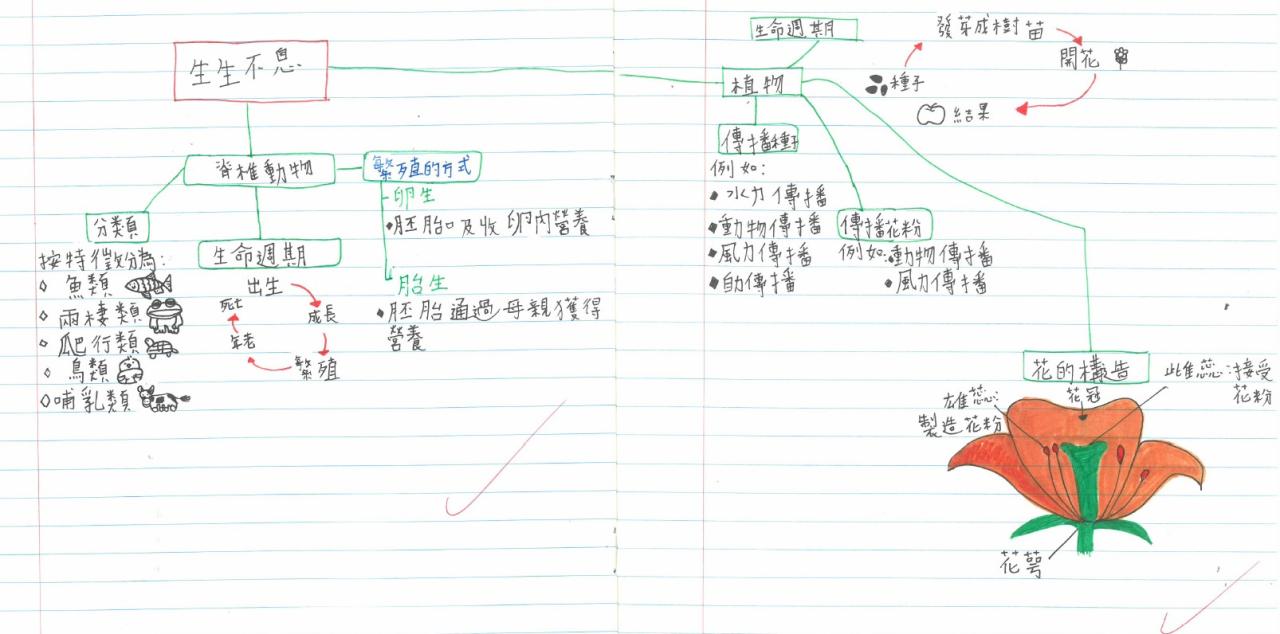 生生不息
脊椎動物
繁殖的方式
卵生
•胚胎吸收卵內營養
胎生
•胚胎通過母親獲得
營養
分類
按特徵分為:
◇ 魚類
◇ 兩棲類
◇ 爬行類
◇ 鳥類
◇哺乳類
生命週期
出生
成長
繁殖
年老
死亡
植物
生命週期
種子
發芽成樹苗
開花
結果
傳播種子
例如:
•水力傳播
•動物傳播
•風力傳播
•自傳播
傳播花粉
例如:•動物傳播
•風力傳播
花的構造
花冠
雄蕊:
製造花粉
雌蕊:接受
花粉
花萼